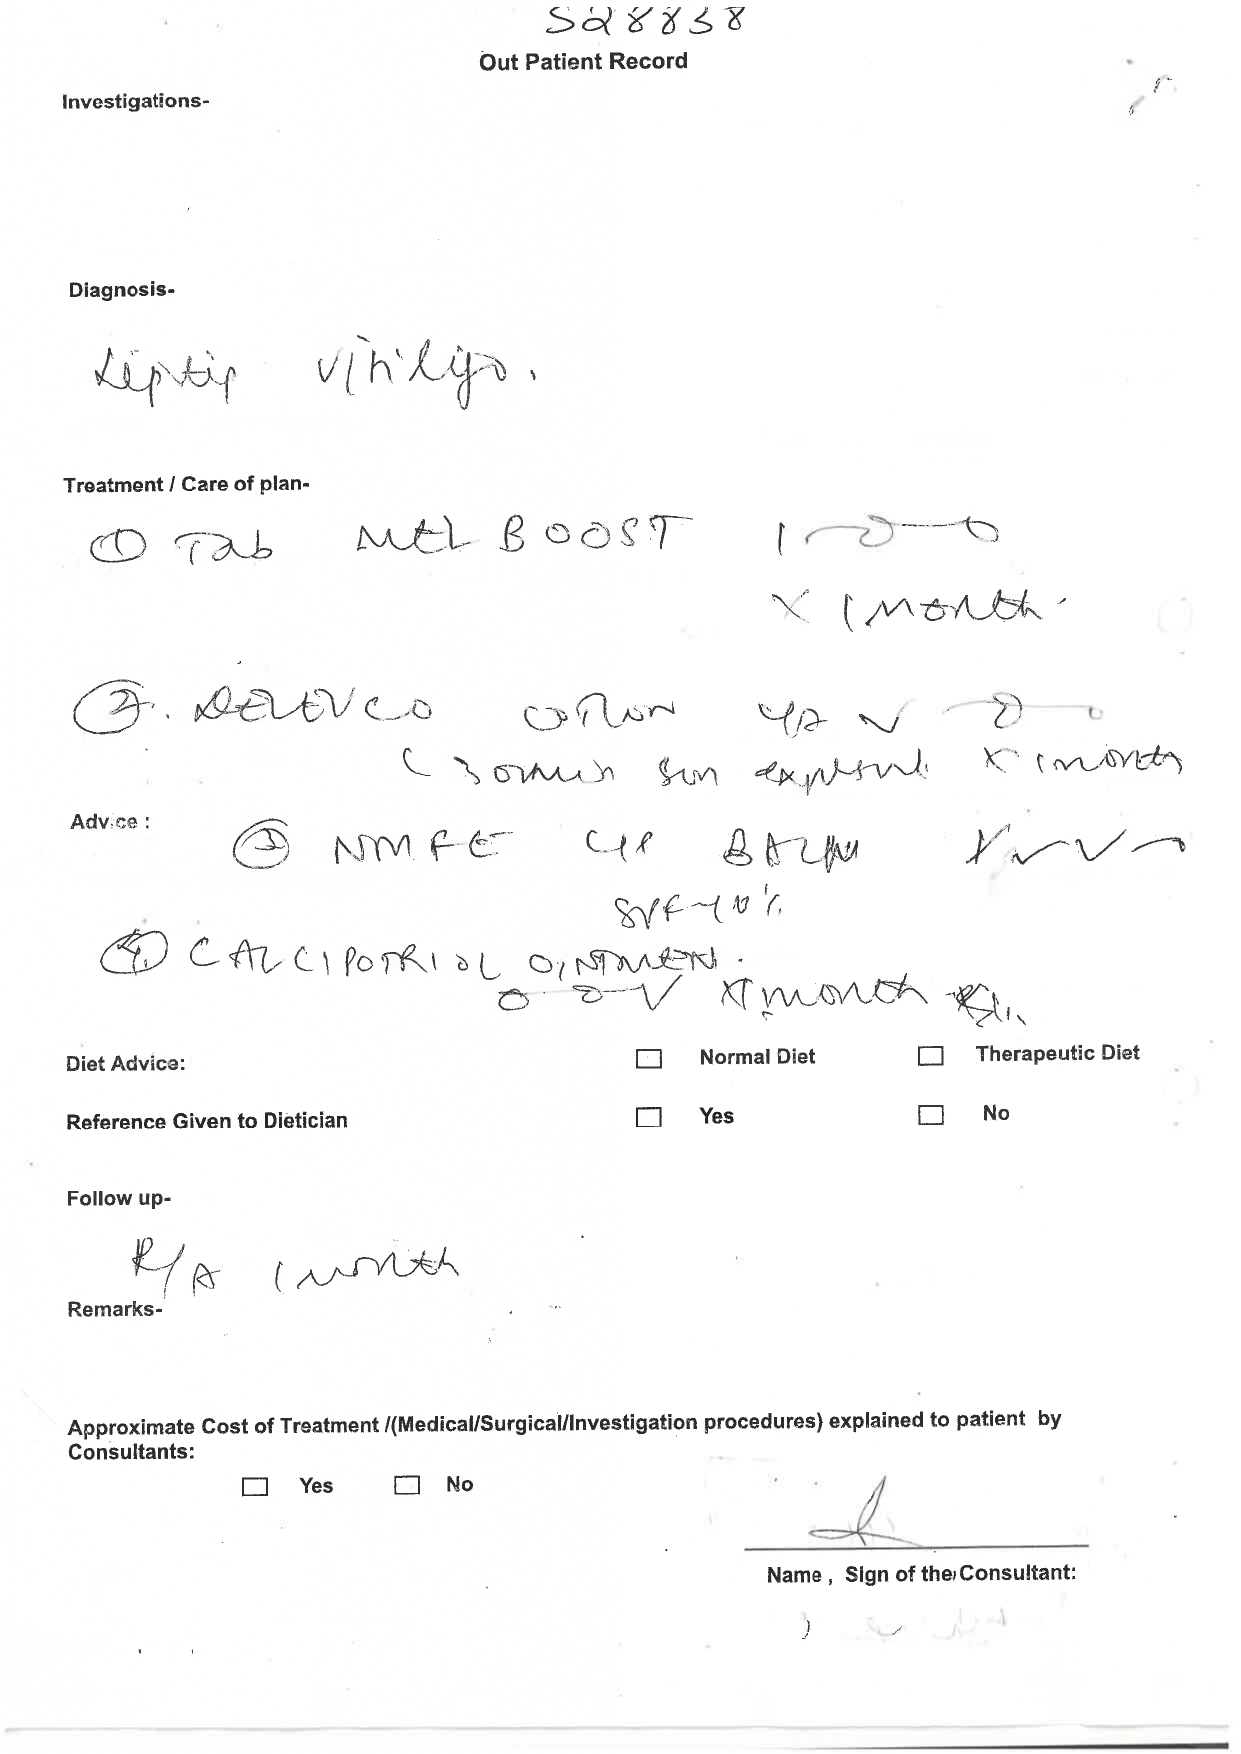 528838
Out Patient Record
Investigations-
Diagnosis-
Liptip vitiligo.
Treatment / Care of plan-
① Tab MELBOOST 1-0-0
X 1 month.
②. LOTION L/A ✓-0-0
30 min sun exposure X 1 month
Advice :
③ NMFE LIP BALM ✓-✓-✓
SPF-40%
④ CALCIPOTRIOL OINTMENT.
0-0-✓ X 1 month
Diet Advice: ☐ Normal Diet ☐ Therapeutic Diet
Reference Given to Dietician ☐ Yes ☐ No
Follow up-
R/A 1 month
Remarks-
Approximate Cost of Treatment /(Medical/Surgical/Investigation procedures) explained to patient by
Consultants:
☐ Yes ☐ No
Name , Sign of the Consultant: